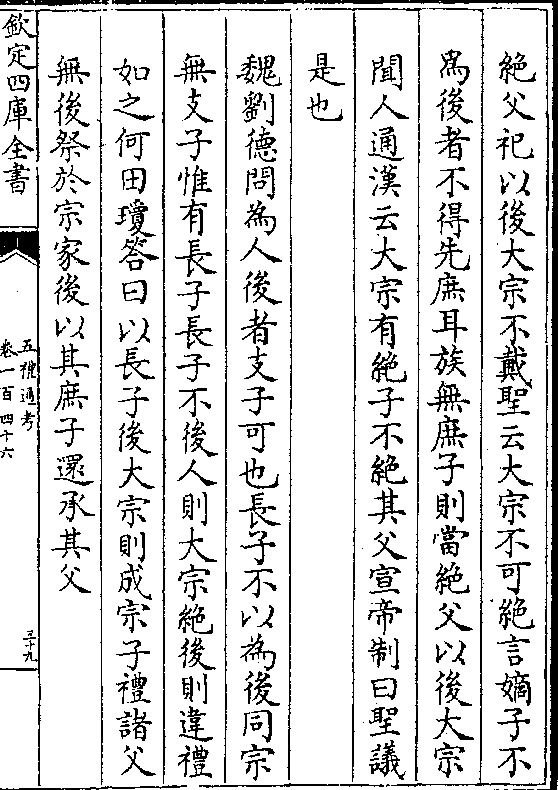 絶父祀以後大宗不戴聖云大宗不可絶言嫡子不
為後者不得先庶耳族無庶子則當絶父以後大宗
聞人通漢云大宗有絶子不絶其父宣帝制曰聖議
是也
魏劉德問為人後者支子可也長子不以為後同宗
無支子惟有長子長子不後人則大宗絶後則違禮
如之何田瓊答曰以長子後大宗則成宗子禮諸父
無後祭於宗家後以其庶子還承其父
欽定四庫全書
五禮通考
卷一百四十六
三十九